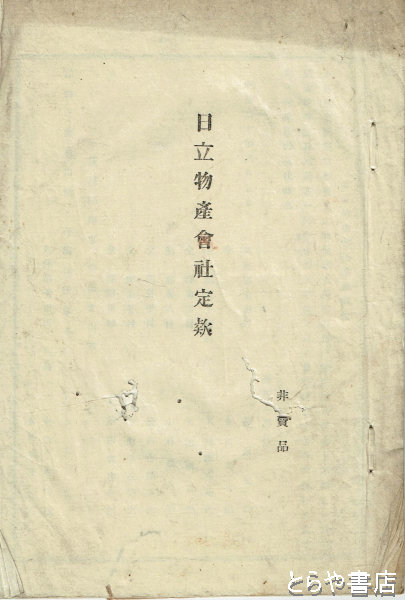 日立物產會社定款
非賣品
とらや書店